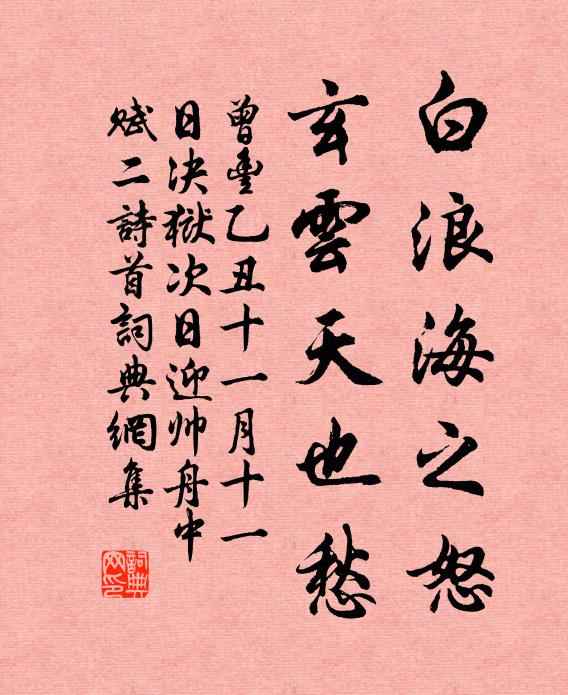 白浪海之怒
玄雲天也愁
曾豊乙丑十一月十一
日决獄次日迎帅舟中
赋二詩首詞典網集
詞典
网印